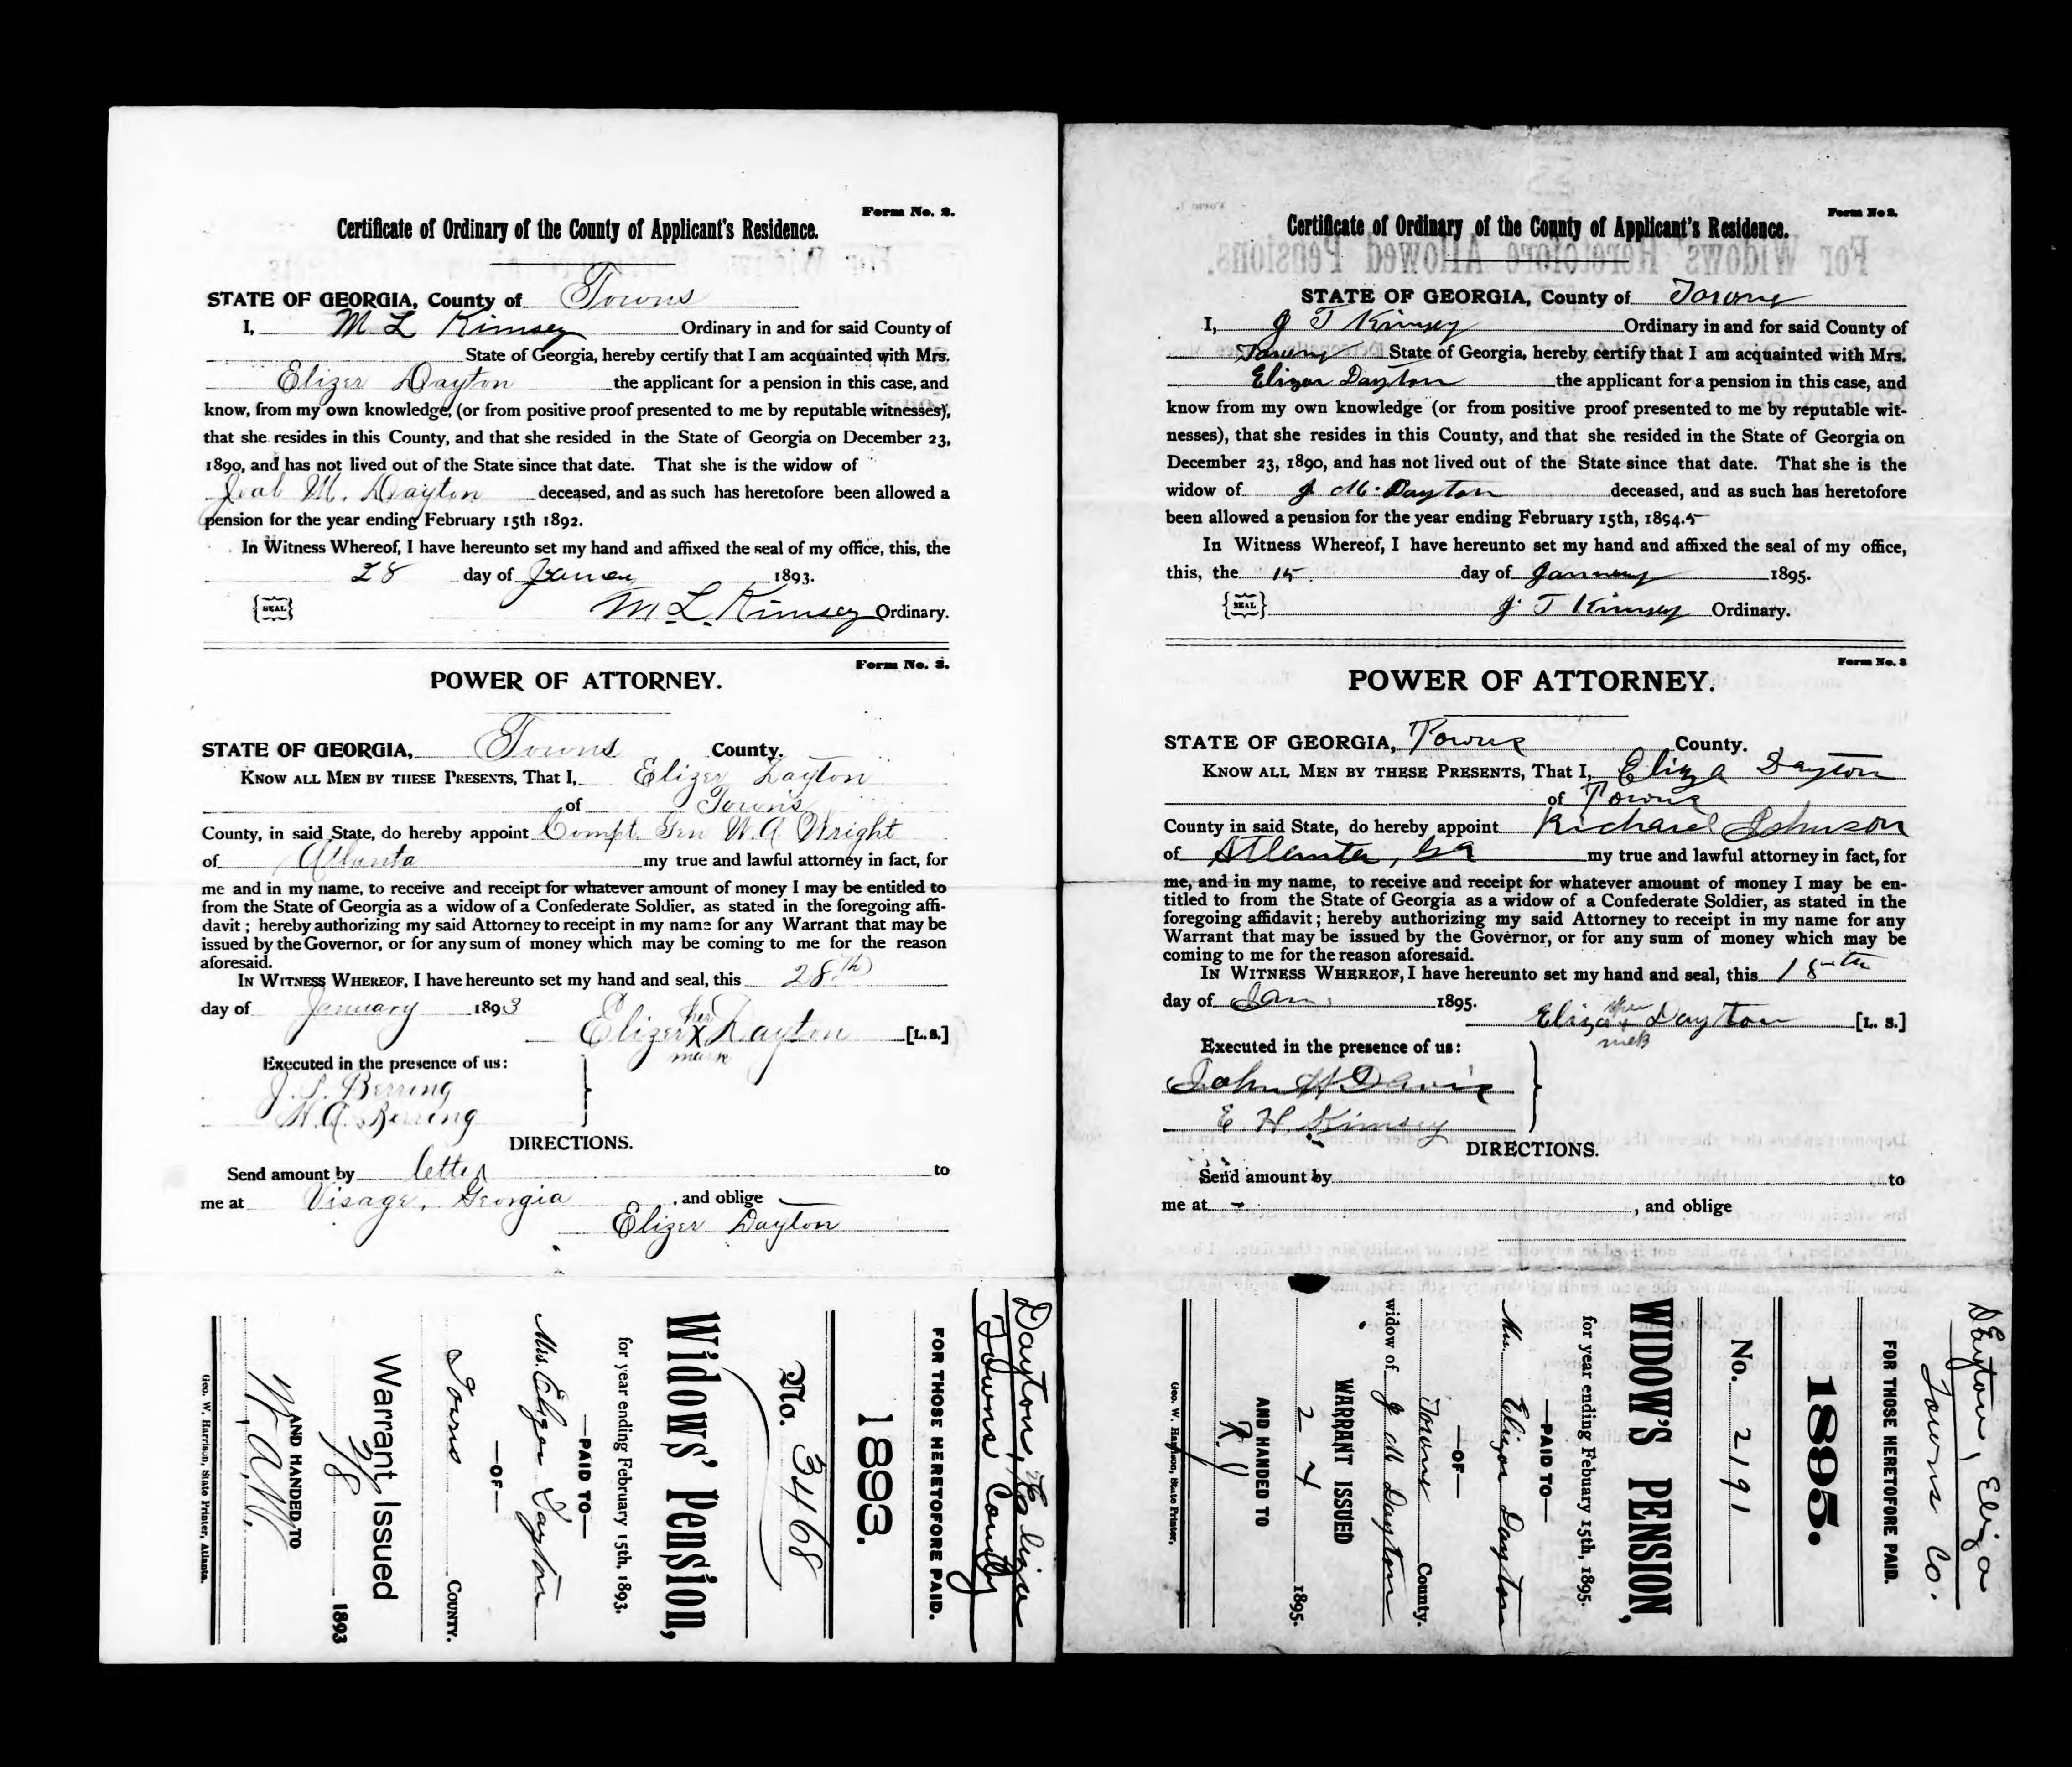 Form No. 2.
Certificate of Ordinary of the County of Applicant's Residence.
STATE OF GEORGIA, County of Towns
I, M L Kimsey Ordinary in and for said County of
State of Georgia, hereby certify that I am acquainted with Mrs.
Elizer Dayton the applicant for a pension in this case, and
know, from my own knowledge, (or from positive proof presented to me by reputable witnesses),
that she resides in this County, and that she resided in the State of Georgia on December 23,
1890, and has not lived out of the State since that date. That she is the widow of
M. Dayton deceased, and as such has heretofore been allowed a
pension for the year ending February 15th 1892.
In Witness Whereof, I have hereunto set my hand and affixed the seal of my office, this, the
28 day of 1893.
SEAL M. L. Kimsey Ordinary.
Form No. 3.
POWER OF ATTORNEY.
STATE OF GEORGIA, Towns County.
KNOW ALL MEN BY THESE PRESENTS, That I, Elizer Dayton
of Towns
County, in said State, do hereby appoint Compt. Gen W. A Wright
of Atlanta my true and lawful attorney in fact, for
me and in my name, to receive and receipt for whatever amount of money I may be entitled to
from the State of Georgia as a widow of a Confederate Soldier, as stated in the foregoing affi-
davit; hereby authorizing my said Attorney to receipt in my name for any Warrant that may be
issued by the Governor, or for any sum of money which may be coming to me for the reason
aforesaid.
IN WITNESS WHEREOF, I have hereunto set my hand and seal, this 28th
day of January 1893
her
Elizer X Dayton [L. S.]
mark
Executed in the presence of us:
J. S. Berring
H. A. Berring
DIRECTIONS.
Send amount by letter to
me at Visage, Georgia, and oblige
Elizer Dayton
Dayton, Eliza
Towns County
FOR THOSE HERETOFORE PAID.
1893.
No. 3468
Widows' Pension,
for year ending February 15th, 1893.
—PAID TO—
Mrs. Elizer Dayton
—OF—
Towns COUNTY.
Warrant Issued
2/8 1893
AND HANDED TO
W. A. W.
Geo. W. Harrison, State Printer, Atlanta.
Form No 2.
Certificate of Ordinary of the County of Applicant's Residence.
STATE OF GEORGIA, County of Towns
I, J T Kimsey Ordinary in and for said County of
Towns State of Georgia, hereby certify that I am acquainted with Mrs.
Elizer Dayton the applicant for a pension in this case, and
know from my own knowledge (or from positive proof presented to me by reputable wit-
nesses), that she resides in this County, and that she resided in the State of Georgia on
December 23, 1890, and has not lived out of the State since that date. That she is the
widow of J M. Dayton deceased, and as such has heretofore
been allowed a pension for the year ending February 15th, 1894.5
In Witness Whereof, I have hereunto set my hand and affixed the seal of my office,
this, the 15 day of January 1895.
SEAL J T Kimsey Ordinary.
Form No. 3
POWER OF ATTORNEY.
STATE OF GEORGIA, Towns County.
KNOW ALL MEN BY THESE PRESENTS, That I, Eliza Dayton
of Towns
County in said State, do hereby appoint Richard Johnson
of Atlanta, Ga my true and lawful attorney in fact, for
me, and in my name, to receive and receipt for whatever amount of money I may be en-
titled to from the State of Georgia as a widow of a Confederate Soldier, as stated in the
foregoing affidavit; hereby authorizing my said Attorney to receipt in my name for any
Warrant that may be issued by the Governor, or for any sum of money which may be
coming to me for the reason aforesaid.
IN WITNESS WHEREOF, I have hereunto set my hand and seal, this 18th
day of Jan. 1895.
her
Eliza + Dayton [L. S.]
Executed in the presence of us:
John W Davis
E. H. Kimsey
DIRECTIONS.
Send amount by to
me at , and oblige
Dayton, Eliza
Towns Co.
FOR THOSE HERETOFORE PAID.
1895.
No. 2191
WIDOW'S PENSION,
for year ending Febuary 15th, 1895.
—PAID TO—
Mrs. Elizer Dayton
—OF—
Towns County.
widow of J M Dayton
WARRANT ISSUED
2 4 1895.
AND HANDED TO
R. J
Geo. W. Harrison, State Printer.